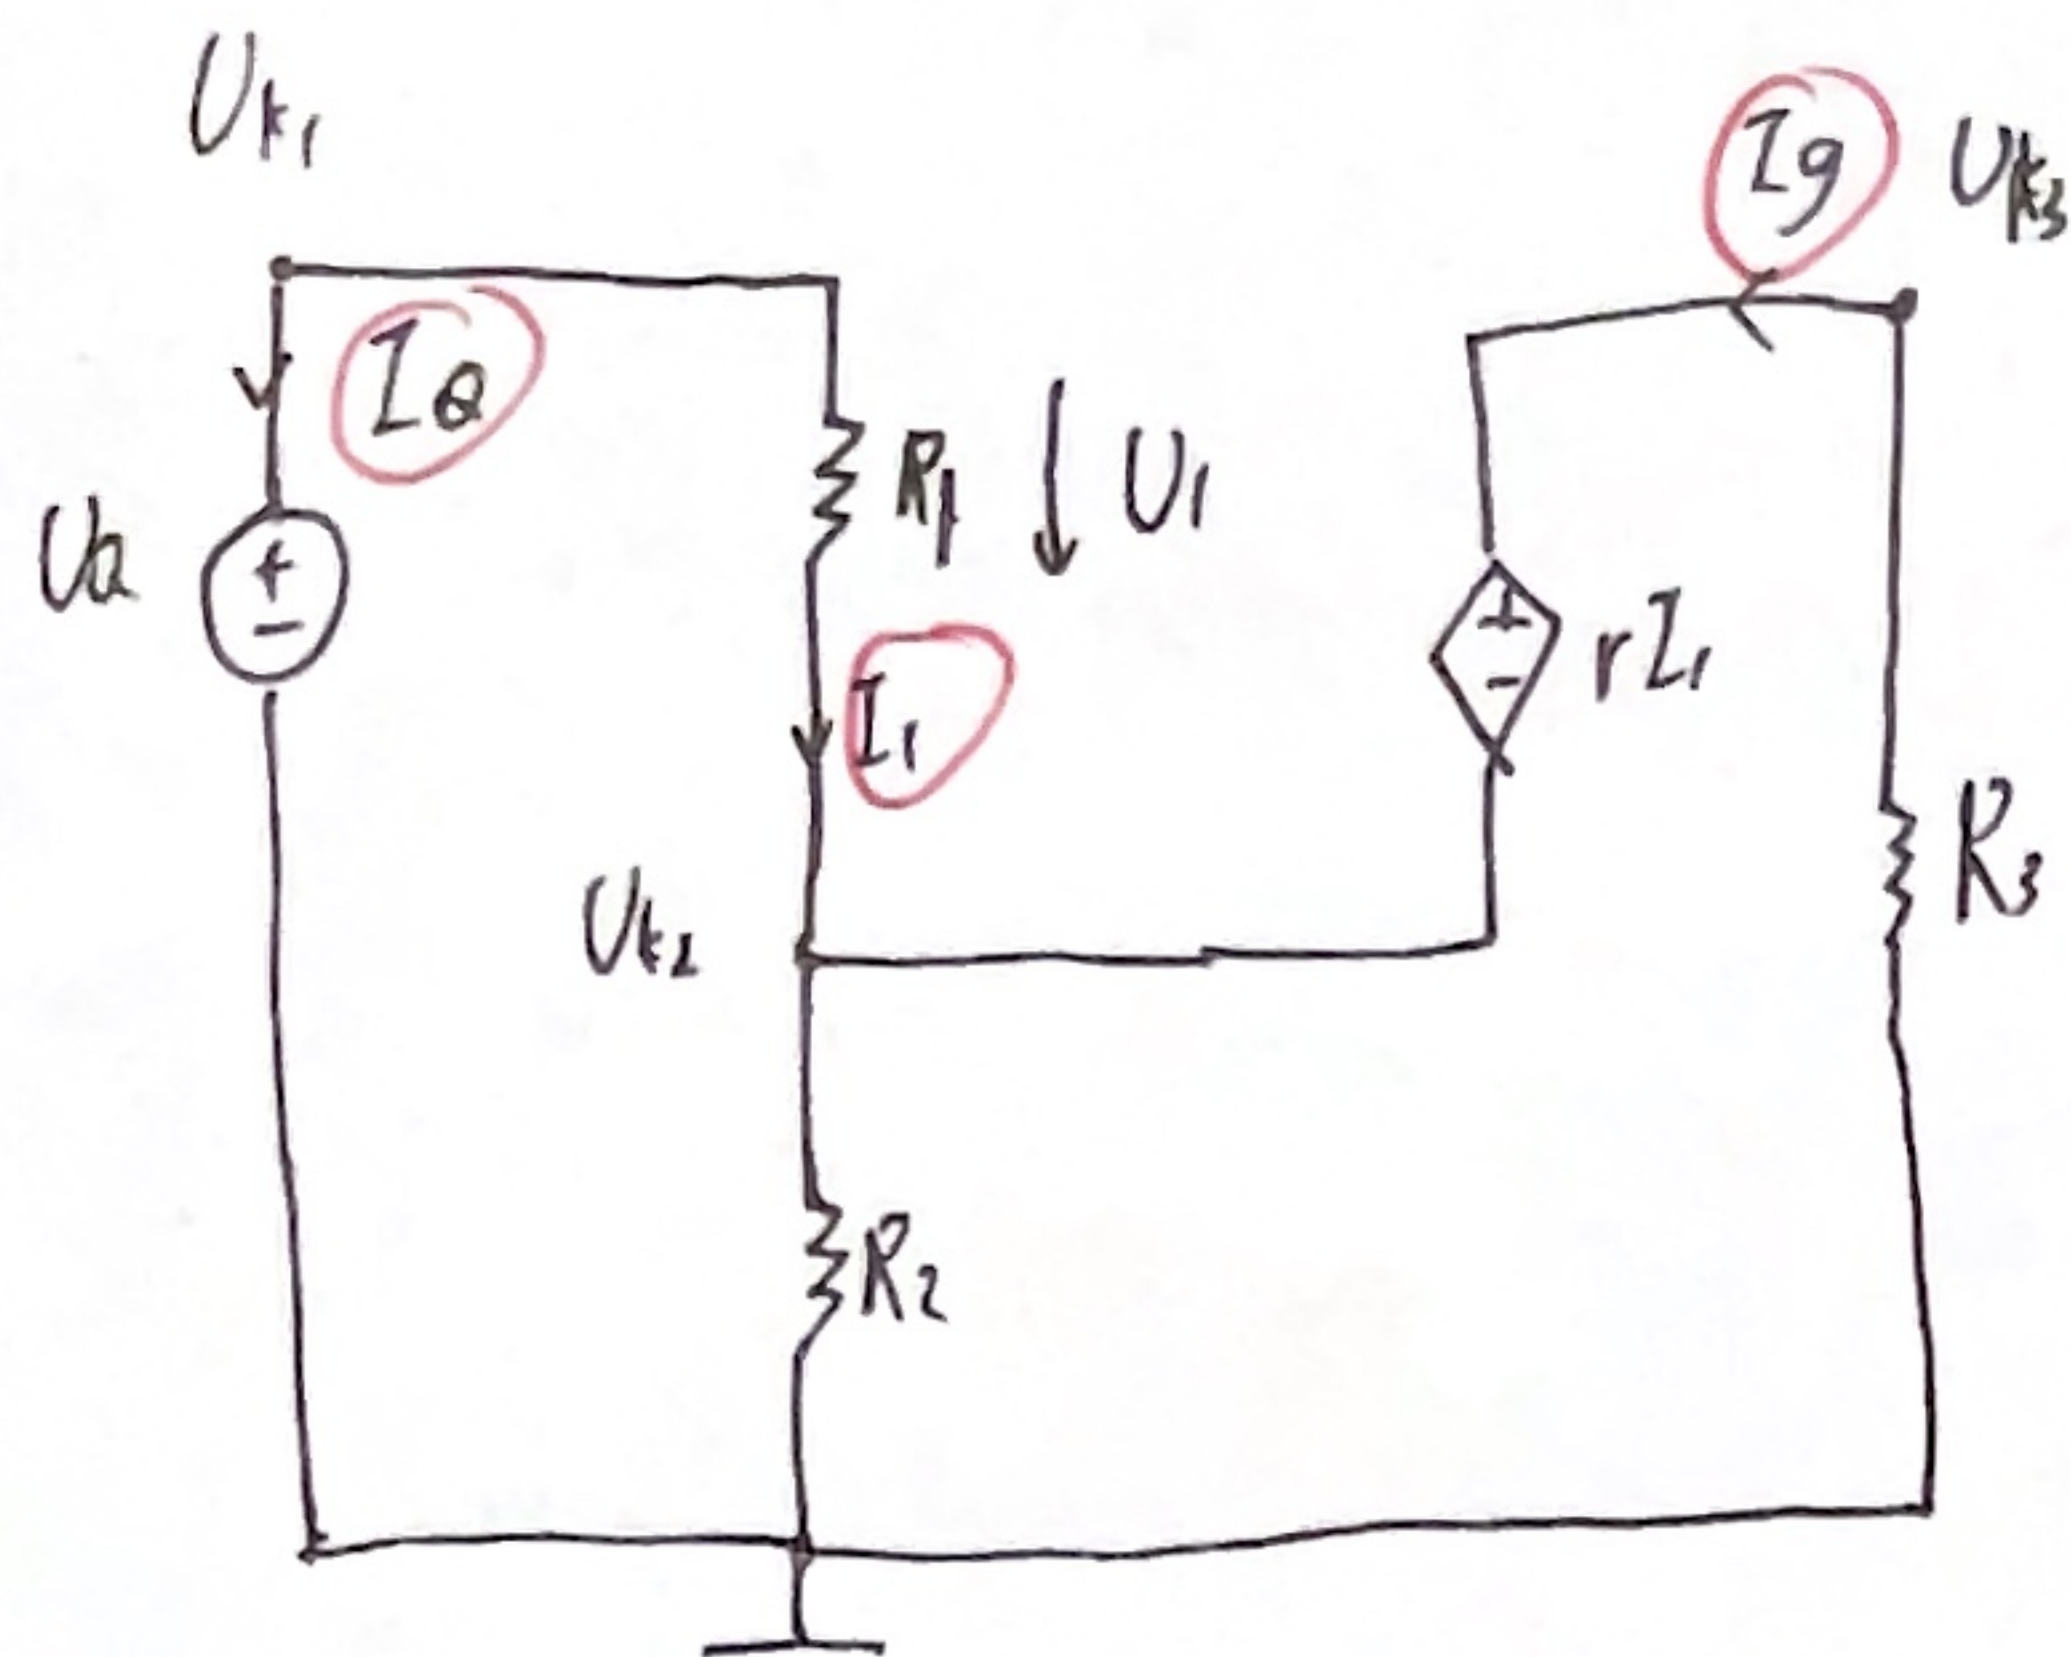 Uk1
Ig
Uk3
IQ
UQ
+
-
R1
U1
I1
+
-
rI1
Uk2
R3
R2